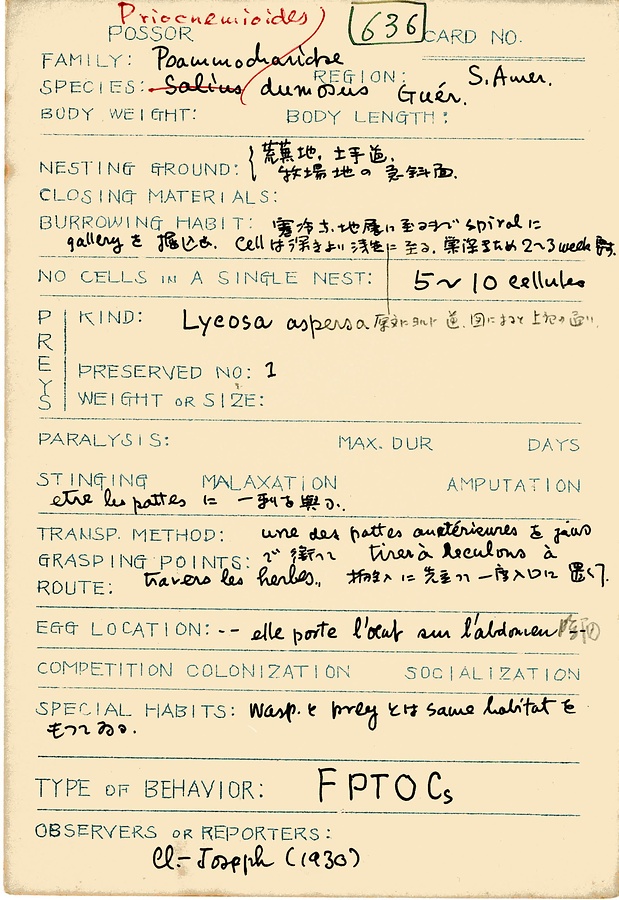 Priocnemioides)
636
POSSOR CARD NO.
FAMILY: Psammocharidae
REGION: S. Amer.
SPECIES: Salius dumosus Guér.
BODY WEIGHT: BODY LENGTH:
NESTING GROUND: 荒蕪地, 土手道,
牧場地の急斜面.
CLOSING MATERIALS:
BURROWING HABIT: 寒冷な地層に至るまで spiral に
gallery を掘じる. Cell は深きより浅きに至る. 2~3 week
NO CELLS IN A SINGLE NEST: 5~10 cellules
PREYS
KIND: Lycosa aspersa
PRESERVED NO: 1
WEIGHT OR SIZE:
PARALYSIS: MAX. DUR DAYS
STINGING MALAXATION AMPUTATION
etre les pattes に 一刺を與う.
TRANSP. METHOD: une des pattes antérieures を jaws
GRASPING POINTS: で衡って tirer à reculons à
ROUTE: travers les herbes., 搬入に先立って一度入口に置く.
EGG LOCATION: -- elle porte l'œuf sur l'abdomen --
COMPETITION COLONIZATION SOCIALIZATION
SPECIAL HABITS: Wasp と prey とは same habitat を
もつてゐる.
TYPE OF BEHAVIOR: FPTOCs
OBSERVERS OR REPORTERS:
Cl.-Joseph (1930)